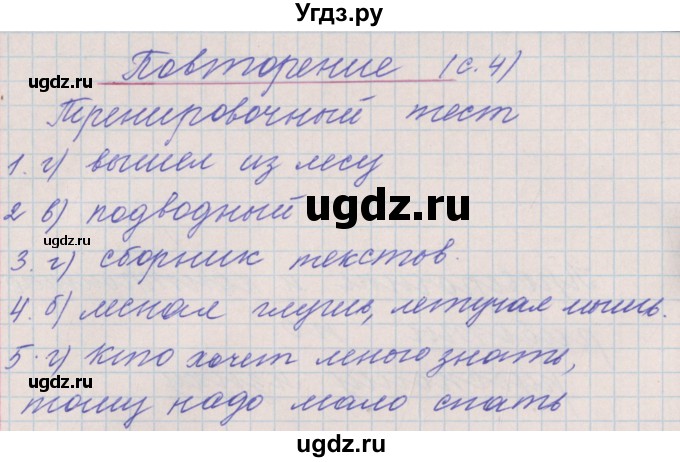 Угдз.ру
Повторение (с. 4)
Тренировочный тест
1. г) вышел из лесу
2 в) подводный
3. г) сборник текстов.
4. б) лесная глушь, летучая мышь.
5. г) Кто хочет много знать,
тому надо мало спать
ugdz.ru
ugdz.ru
ugdz.ru
ugdz.ru
ugdz.ru